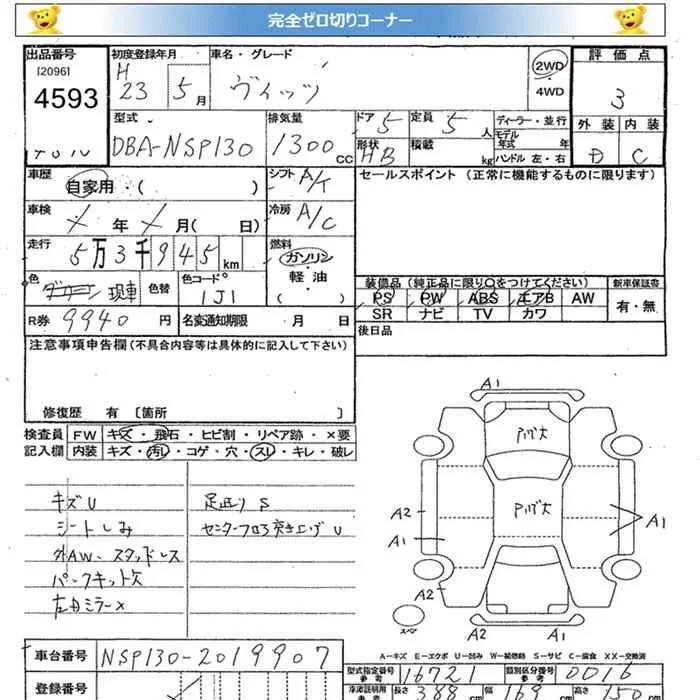 完全ゼロ切りコーナー
出品番号 初度登録年月 車名・グレード 2WD 評価点
120961 H 23 5月 ヴィッツ 4WD 3
4593
型式 排気量 ドア 5 定員 5人 ディーラー・並行 外装 内装
DBA-NSP130 1300cc 形状 HB 積載 kg モデル年式 年 D C
ハンドル 左・右
車歴 シフト A/T セールスポイント (正常に機能するものに限ります)
自家用・( )
車検 年 月( 日) 冷房 A/C
走行 5万3千945km 燃料 ガソリン・軽・油 ( )
色 現車 色替 色コード 1J1 装備品 (純正品に限り○をつけてください) 新車保証書
PS PW ABS エアB AW 有・無
SR ナビ TV カワ
R券 9940円 名変通知期限 月 日 後日品
注意事項申告欄(不具合内容等は具体的に記入して下さい)
修復歴 有 〔箇所 〕
検査員 FW キズ・飛石・ヒビ割・リペア跡・×要
記入欄 内装 キズ・汚し・コゲ・穴・スレ・キレ・破レ
キズU
シートしみ
外AW-スタッドレス
パークキット欠
左ミラー×
突き上げ U
A1
A2
A1
A2
A1
A2 A1
A-キズ E-エクボ U-凹み W-補修跡 S-サビ C-腐食 XX-交換済
車台番号 NSP130-2019907
型式指定番号 参考 16721 類別区分番号 参考 0016
登録番号
長さ 388cm 幅 169cm 高さ 150cm